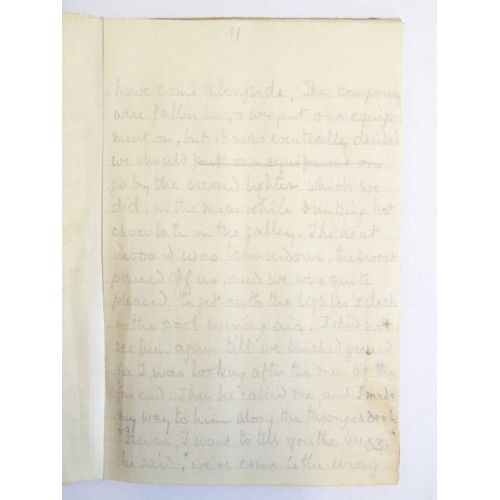 11
have come alongside. The company
were fallen in, & we put our equip
ment on, but it was eventually decided
we should put our equipment on
go by the second lighter which we
did, in the meanwhile drinking hot
chocolate in the galley. The heat
aboard was tremendous, the sweat
poured off us, and we were quite
pleased to get onto the lighter's deck
in the cool evening air. I did not
see him again till we touched ground
for I was looking after the men at the
far end. Then he called me, and I made
my way to him along the thronged deck
"I want to tell you the buzz,"
he said, "we've come to the wrong